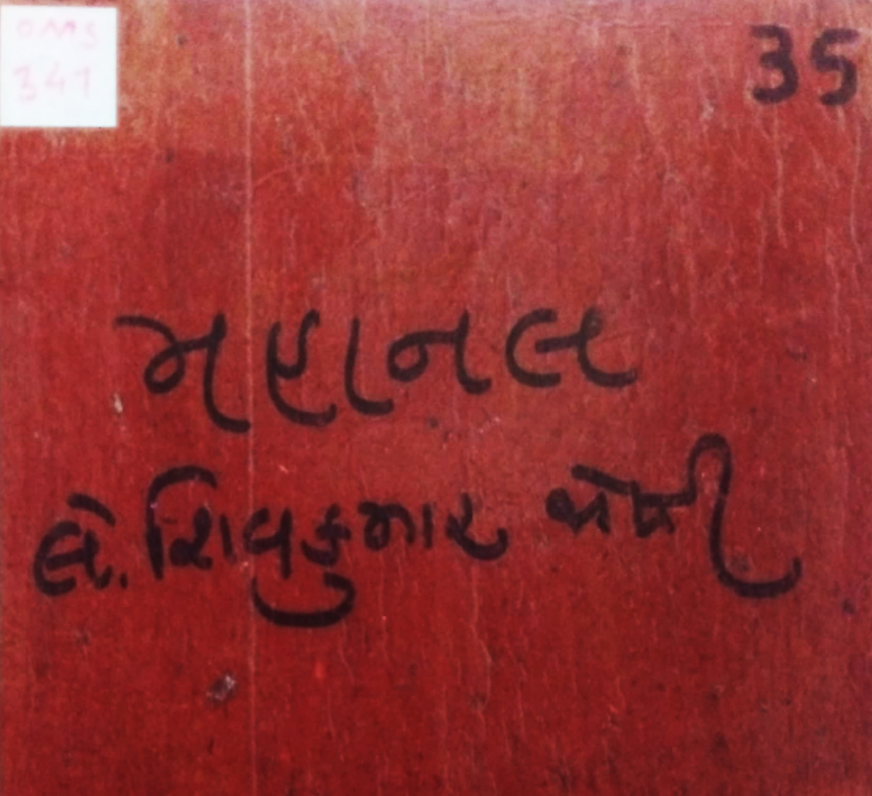 OMS
341
35
મહાનલ
લે. શિવકુમાર જોષી